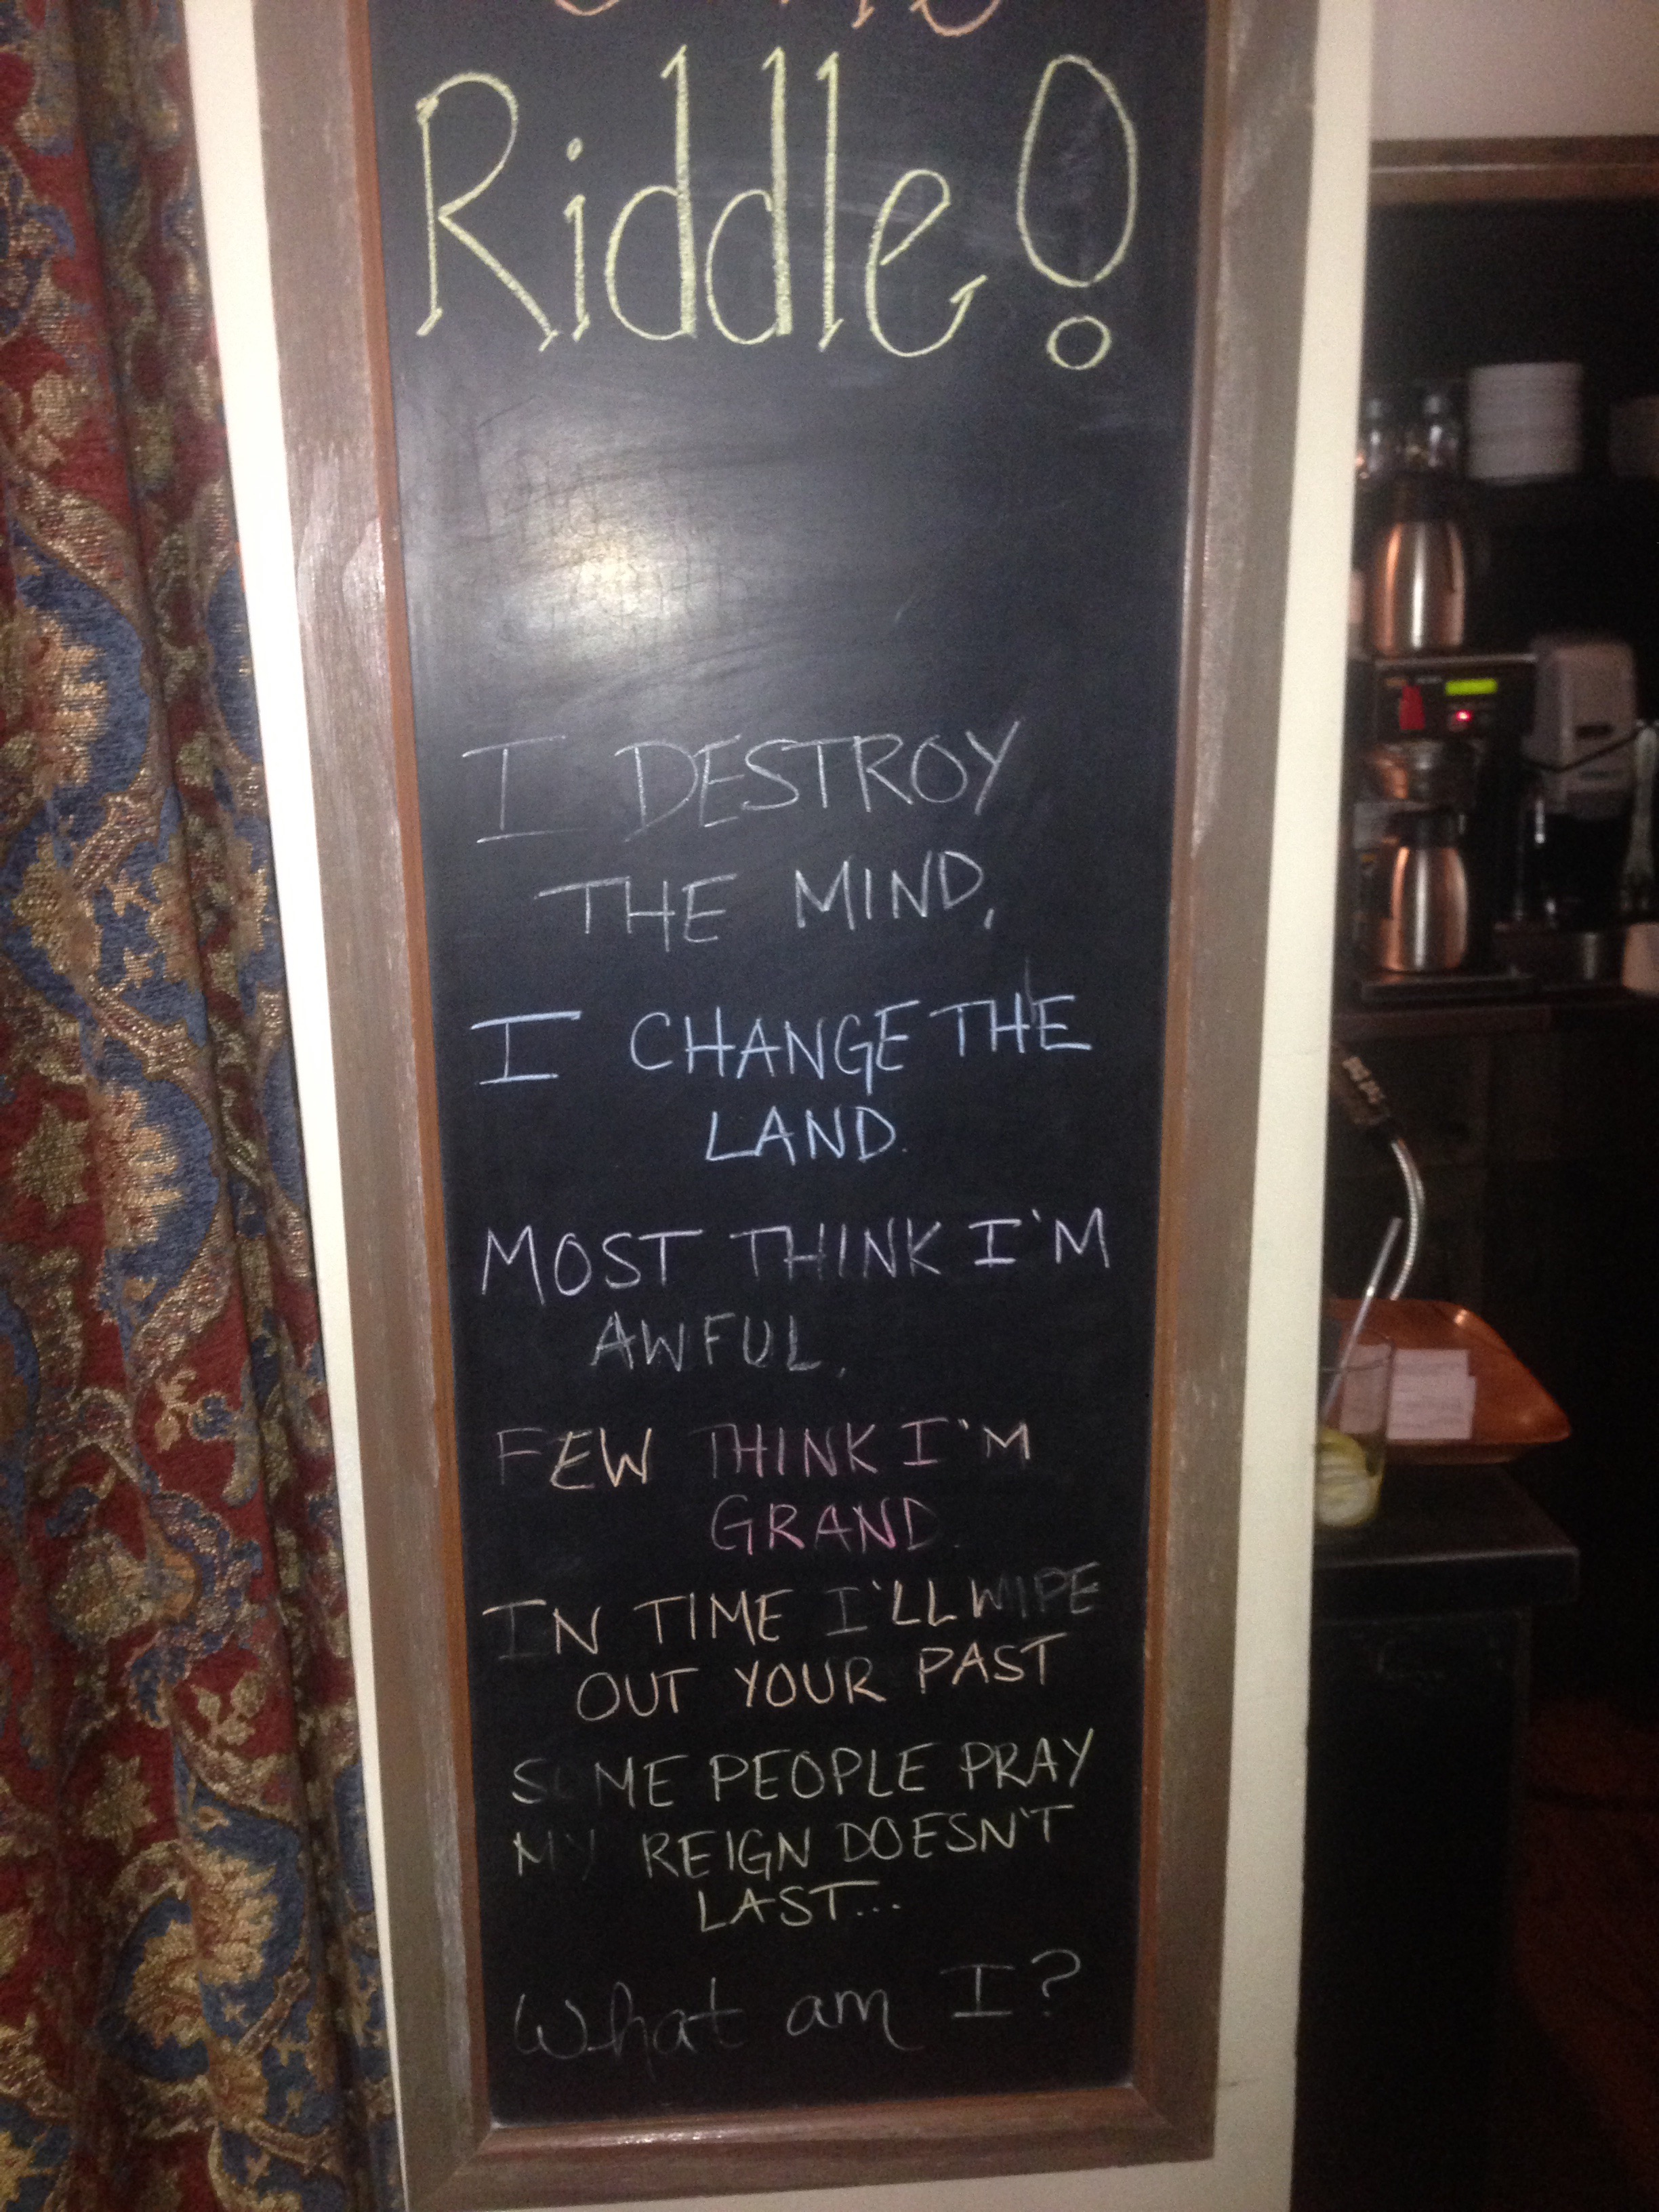 Riddle!
I DESTROY
THE MIND,
I CHANGE THE
LAND.
MOST THINK I'M
AWFUL,
FEW THINK I'M
GRAND.
IN TIME I'LL WIPE
OUT YOUR PAST
SOME PEOPLE PRAY
MY REIGN DOESN'T
LAST...
What am I?